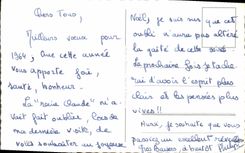 Chers Tous,
Meilleurs vœux pour
1964, que cette année
vous apporte joie,
santé, bonheur.
La "sainte Claude" m'a-
vait fait oublier, lors de
ma dernière visite, de
vous souhaiter un joyeux
Noël, je suis sûr que cet
oubli n'aura pas altéré
la gaîté de cette
La prochaine fois je tâche-
rai d'avoir l'esprit plus
clair et les pensées plus
vives !!
je souhaite que vous
passiez un excellent réveillon
Gros baisers à bientôt